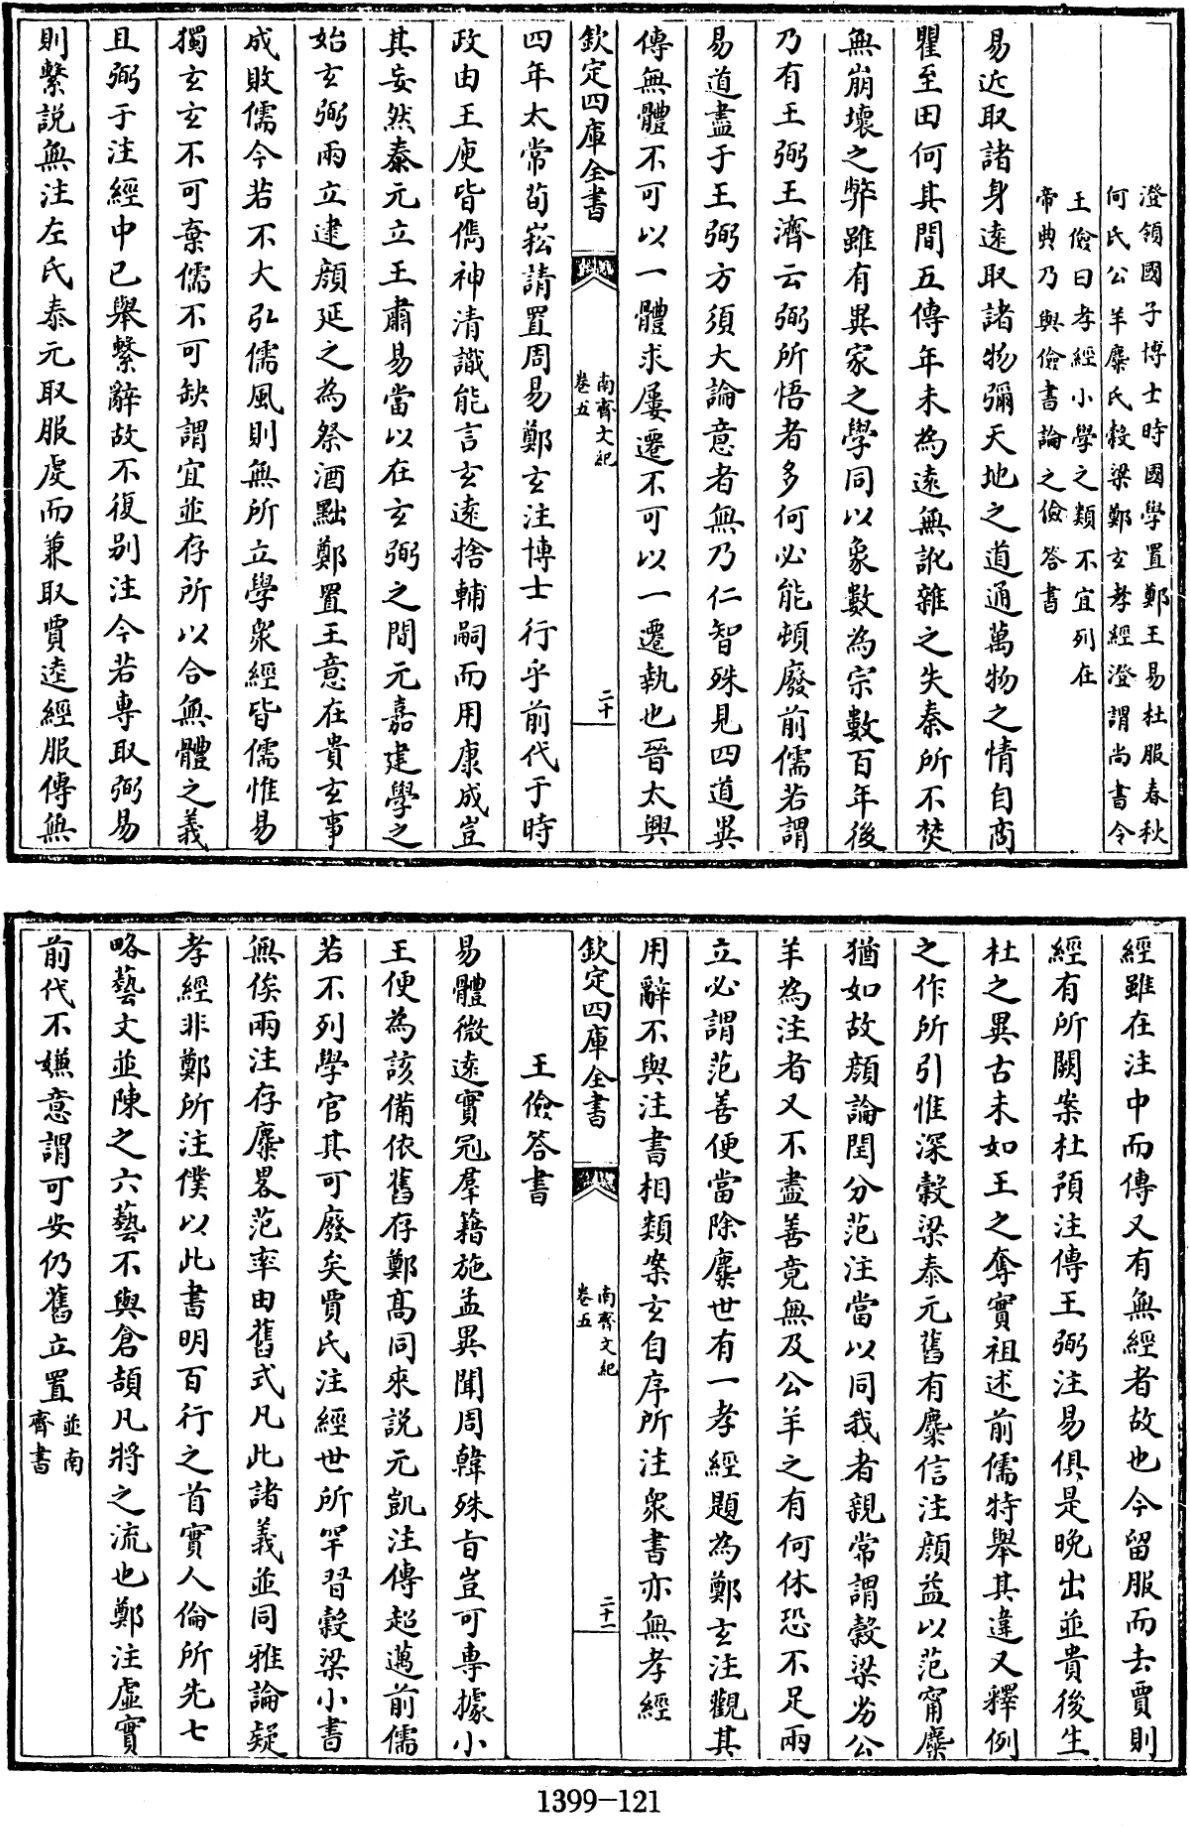 澄領國子博士時國學置鄭王易杜服春秋
何氏公羊麋氏穀梁鄭玄孝經澄謂尚書令
王儉曰孝經小學之類不宜列在
帝典乃與儉書論之儉答書
易近取諸身遠取諸物彌天地之道通萬物之情自商
瞿至田何其間五傳年未為遠無訛雜之失秦所不焚
無崩壞之弊雖有異家之學同以象數為宗數百年後
乃有王弼王濟云弼所悟者多何必能頓廢前儒若謂
易道盡于王弼方須大論意者無乃仁智殊見四道異
傳無體不可以一體求屢遷不可以一遷執也晉太興
欽定四庫全書
南齊文紀
卷五
二十
四年太常荀崧請置周易鄭玄注博士行乎前代于時
政由王庾皆儁神清識能言玄遠捨輔嗣而用康成豈
其妄然泰元立王肅易當以在玄弼之間元嘉建學之
始玄弼兩立逮顏延之為祭酒黜鄭置王意在貴玄事
成敗儒今若不大弘儒風則無所立學衆經皆儒惟易
獨玄玄不可棄儒不可缺謂宜並存所以合無體之義
且弼于注經中已舉繫辭故不復别注今若專取弼易
則繫說無注左氏泰元取服虔而兼取賈逵經服傳無
經雖在注中而傳又有無經者故也今留服而去賈則
經有所闕案杜預注傳王弼注易俱是晚出並貴後生
杜之異古未如王之奪實祖述前儒特舉其違又釋例
之作所引惟深穀梁泰元舊有麋信注顏益以范甯麋
猶如故顏論閏分范注當以同我者親常謂穀梁劣公
羊為注者又不盡善竟無及公羊之有何休恐不足兩
立必謂范善便當除麋世有一孝經題為鄭玄注觀其
用辭不與注書相類案玄自序所注衆書亦無孝經
欽定四庫全書
南齊文紀
卷五
二十一
王儉答書
易體微遠實冠羣籍施孟異聞周韓殊旨豈可專據小
王便為該備依舊存鄭高同來說元凱注傳超邁前儒
若不列學官其可廢矣賈氏注經世所罕習穀梁小書
無俟兩注存麋畧范率由舊式凡此諸義並同雅論疑
孝經非鄭所注僕以此書明百行之首實人倫所先七
略藝文並陳之六藝不與倉頡凡將之流也鄭注虛實
前代不嫌意謂可安仍舊立置並南
齊書
1399-121